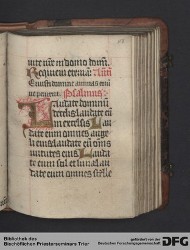 Requiem eternam
Psalmus
Laudate dominum
de celis laudate eum
in excelsis Lau
date eum omnes ange
li eius laudate eum omnes
virtutes eius Lauda
te eum sol et luna lau
date eum omnes stelle
Bibliothek des
Bischöflichen Priesterseminars Trier
gefördert von der
Deutschen Forschungsgemeinschaft
DFG